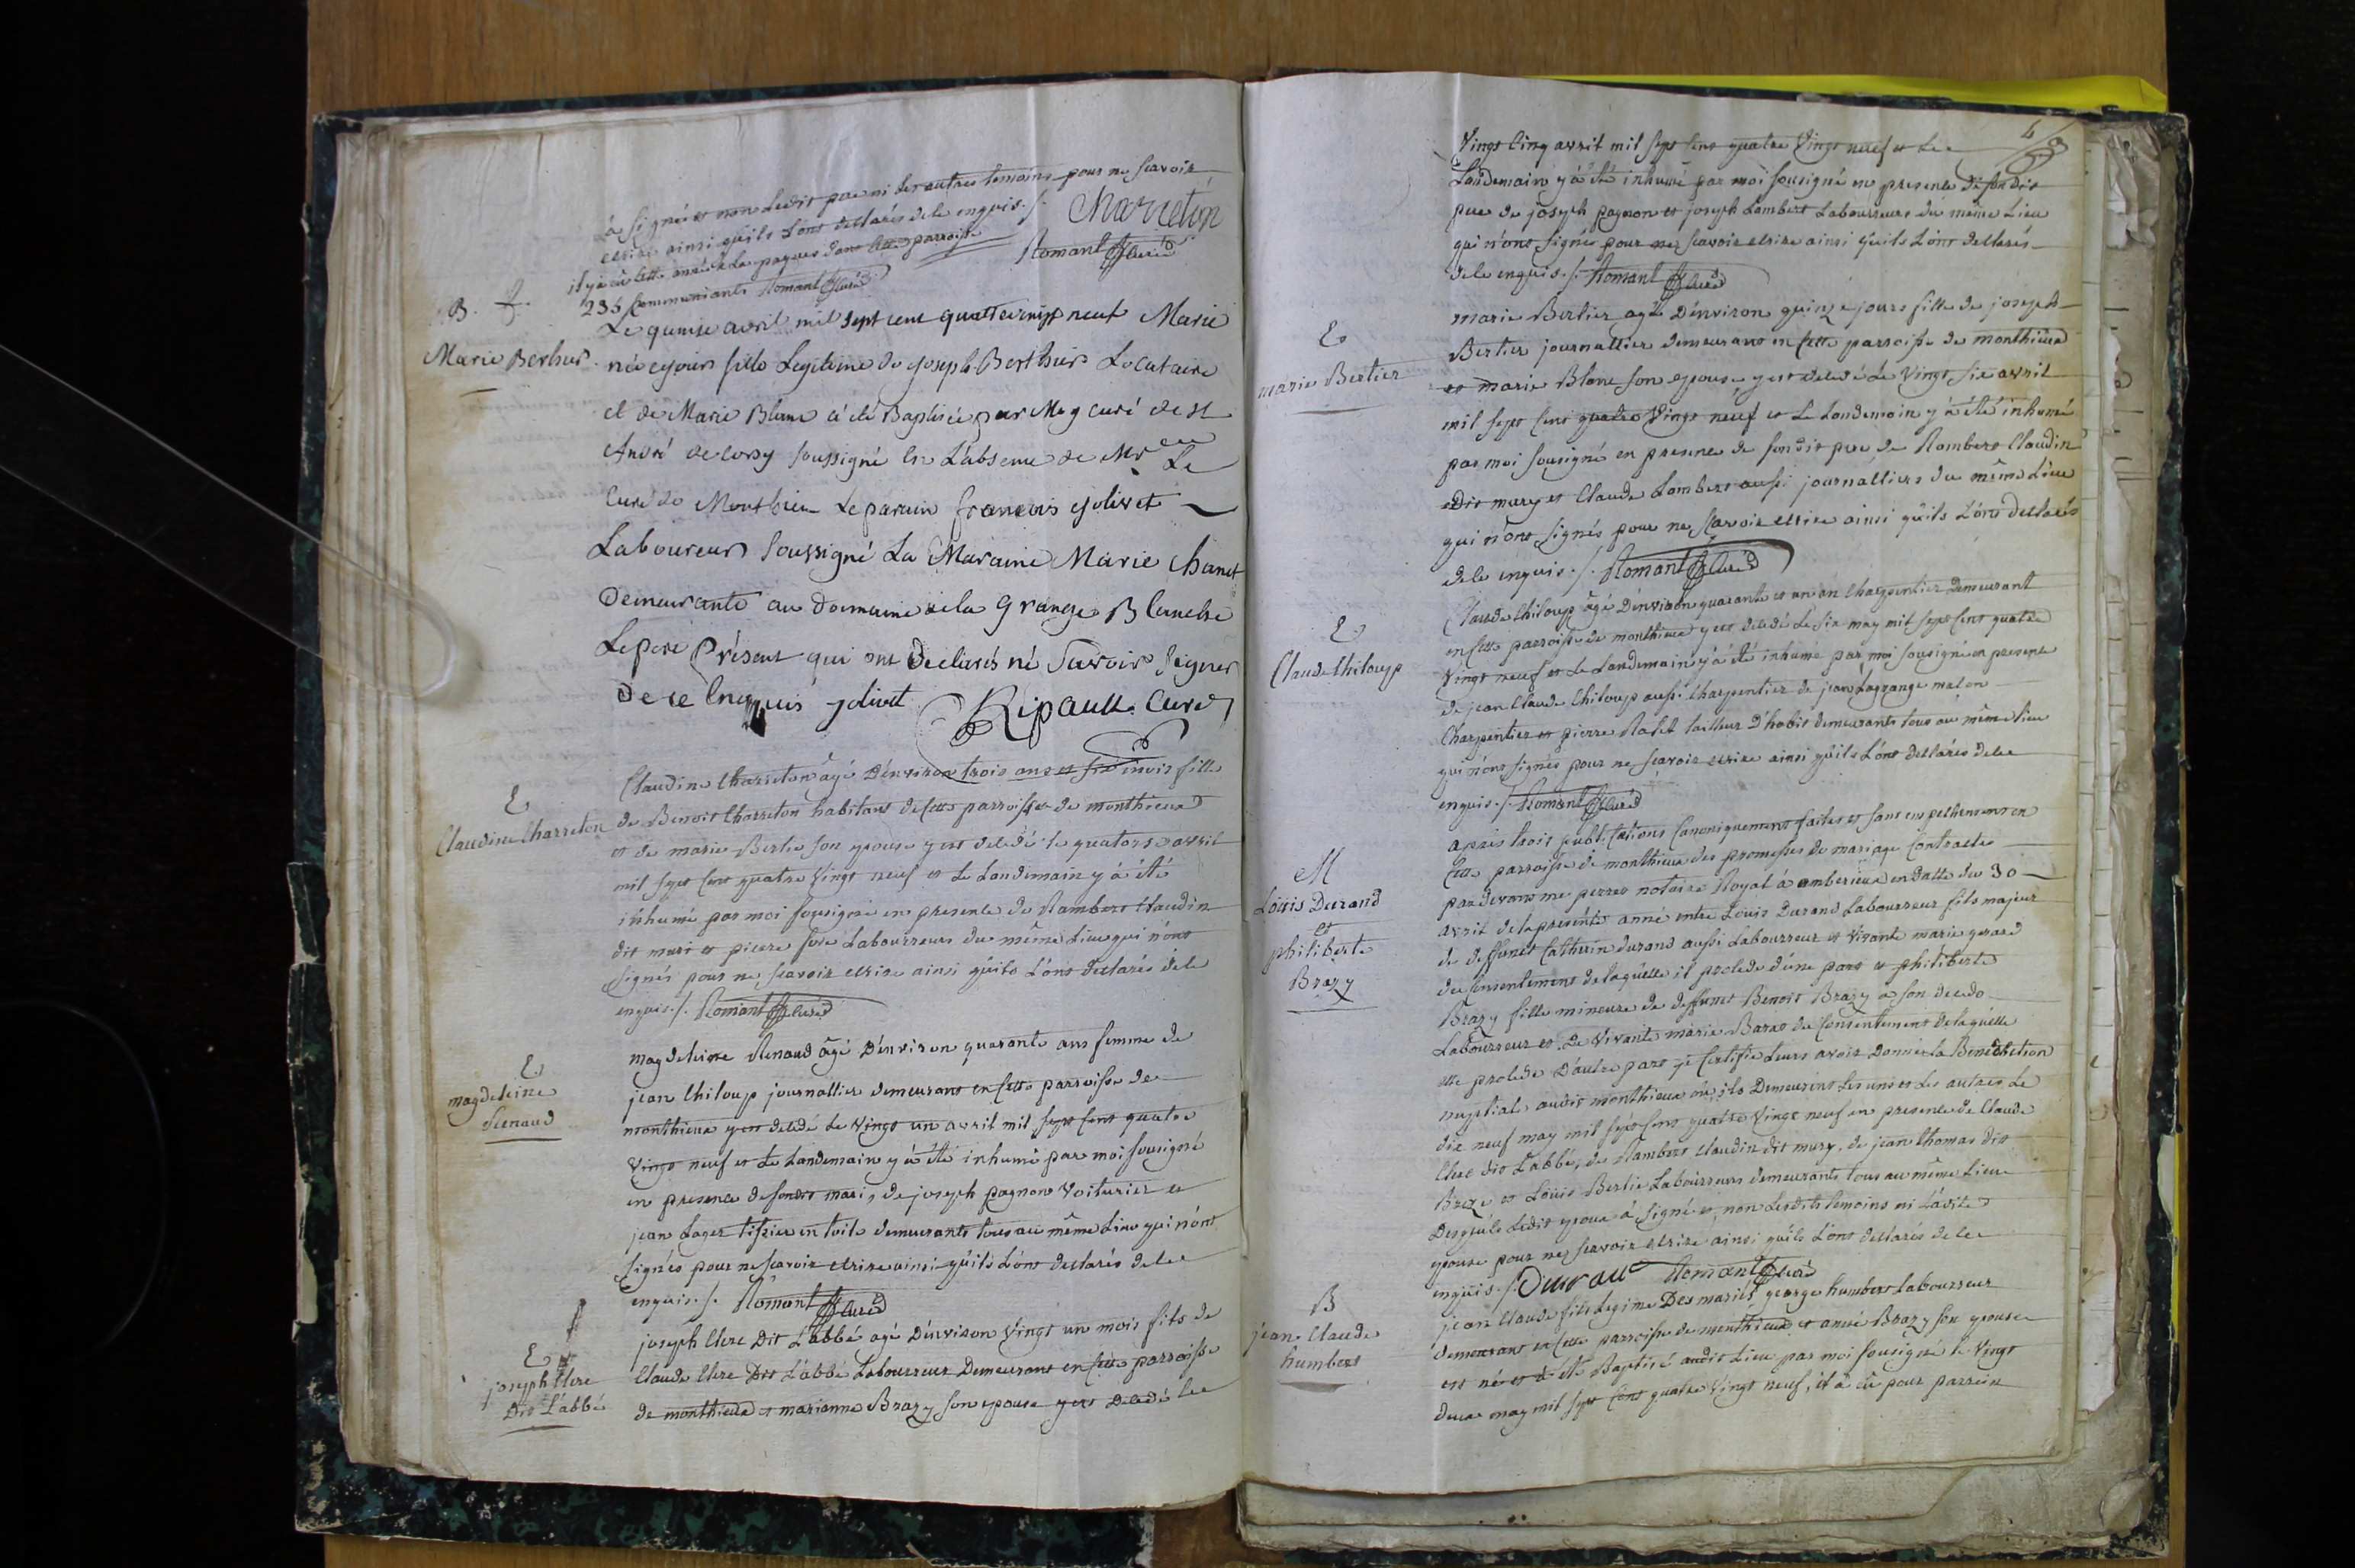 à signé et non ledit pere ni les autres temoins pour ne scavoir
ecrire ainsi qu'ils l'ont declarés de ce enquis ./. Charreton
Romant curé
il y a eu cette année à la paques dans cette parroisse
235 Communiants Romant curé
B.
Marie Berthier
Le quinze avril mil sept cent quattrevingt neuf Marie
née ce jour fille Legitime de joseph Berthier Locataire
et de Marie Blanc a été Baptisée par Moy curé de st
André de corcy soussigné en L'absence de Mr Le
Curé de Monthieu Le parain françois jolivet
Laboureur soussigné La Maraine Marie Chanet
Demeurante au Domaine de la Grange Blanche
Le pere Présent qui ont Declarés né Savoir Signer
De ce Enquis jolivet Ripault Curé
E
Claudine Charreton
Claudine Charreton âgé D'environ trois ans et six mois fille
de Benoit Charreton habitant de cette parroisse de monthieux
et de marie Bertie son epouse y est decedé le quatorse avril
mil sept cent quatre vingt neuf et Le Landemain y à été
inhumé par moi sousigné en presence de Rambert Claudin
dit muri et pierre Labourreurs du même Lieu qui n'ont
signés pour ne scavoir ecrire ainsi qu'ils L'ont declarés de ce
enquis ./. Romant curé
E
magdeleine
Renaud
magdeleine Renaud âgé D'environ quarante ans femme de
jean Chiloup journallier demeurant en cette parroisse de
monthieux y est decedé Le vingt un avril mil sept cent quatre
vingt neuf et Le Landemain y à été inhumé par moi sousigné
en presence de sondit mari, de joseph pagnon Voiturier et
jean Lager tissier en toile demeurants tous au même Lieu qui n'ont
signés pour ne scavoir ecrire ainsi qu'ils L'ont declarés de ce
enquis ./. Romant curé
E
joseph Clerc
Dit L'abbé
joseph Clerc Dit L'abbé agé D'environ Vingt un mois fils de
Claude Clerc Dit L'abbé Labourreur Demeurant en cette parroisse
de monthieux et marianne Brazy son epouse y est Decedé Le
Vingt cinq avril mil sept cent quatre Vingt neuf et Le
Landemain y à été inhumé par moi sousigné en presence de sondit
pere de joseph pagnon et joseph Lambert Labourreurs du même Lieu
qui n'ont signés pour ne scavoir ecrire ainsi qu'ils L'ont declarés
de ce enquis ./. Romant curé
E
marie Bertier
marie Bertier agée D'environ quinze jours fille de joseph
Bertier journallier demeurant en cette parroisse de monthieux
et marie Blanc son epouse y est decedé Le Vingt six avril
mil sept cent quatre Vingt neuf et Le Landemain y à été inhumé
par moi sousigné en presence de sondit pere de Rambert Claudin
Dit mury et Claude Lambert aussi journalliers du même Lieu
qui n'ont signés pour ne scavoir ecrire ainsi qu'ils L'ont declarés
de ce enquis ./. Romant curé
E
Claude Chiloup
Claude Chiloup âgé D'environ quarante et un an Charpentier Demeurant
en cette parroisse de monthieux y est decedé Le six may mil sept cent quatre
Vingt neuf et Le Landemain y à été inhumé par moi sousigné en presence
de jean Claude Chiloup aussi Charpentier de jean Lagrange
Charpentier et pierre tailleur D'habit demeurants tous au même Lieu
qui n'ont signés pour ne scavoir ecrire ainsi qu'ils L'ont declarés de ce
enquis ./. Romant curé
M
Louis Durand
et
philiberte
Brazy
après trois publications Canoniquement faites et sans empechement en
Cette parroisse de monthieux des promesses de mariage Contractés
pardevant me notaire Royal à amberieux en datte du 30
avril de la presente anné entre Louis Durand Labourreur fils majeur
de deffunct Catherin durand aussi Labourreur et Vivante marie gerard
du consentement de laquelle il procede d'une part et philiberte
Brazy fille mineure de deffunct Benoit Brazy à son decedo
Labourreur et de Vivante marie Baras du Consentement de laquelle
elle procede D'autre part je Certifie Leurs avoir Donnée La Benediction
nuptiale audit monthieux où ils Demeurent Les uns et Les autres Le
dix neuf may mil sept cent quatre Vingt neuf en presence de Claude
Clerc dit L'abbé, de Rambert Claudin dit mury, de jean thomas dit
Braze et Louis Bertie Labourreurs demeurants tous au même Lieu
Desquels Ledit epoux à signé et non Lesdits temoins ni Ladite
epouse pour ne scavoir ecrire ainsi qu'ils L'ont declarés de ce
enquis ./. Durau Romant curé
B
jean Claude
humbert
jean Claude fils Legime Des mariés george humbert Labourreur
demeurant en cette parroisse de monthieux et anne Brazy son epouse
est né et à été Baptisé audit Lieu par moi sousigné le Vingt
deux may mil sept cent quatre Vingt neuf, il à eû pour parrein